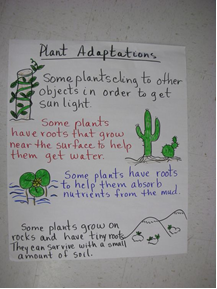 Plant Adaptations
Some plants cling to other
objects in order to get
sun light.
Some plants
have roots that grow
near the surface to help
them get water.
Some plants have roots
to help them absorb
nutrients from the mud.
Some plants grow on
rocks and have tiny roots.
They can survive with a small
amount of soil.